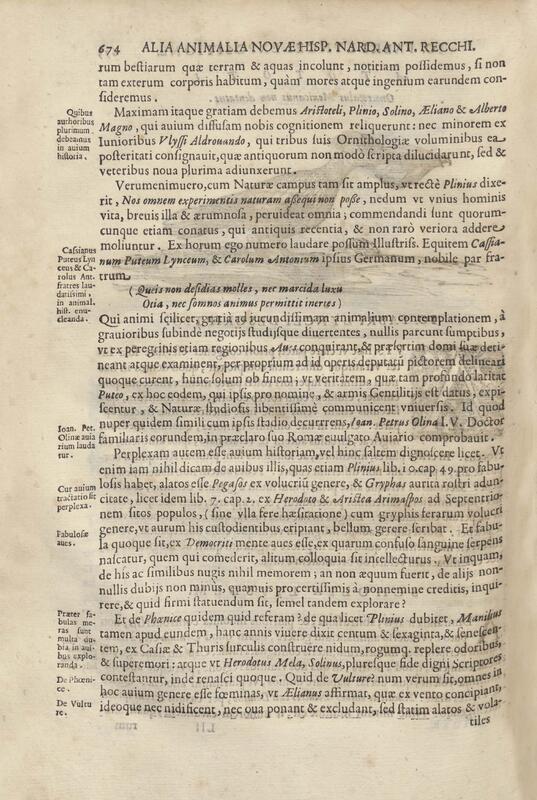 674 ALIA ANIMALIA NOVÆ HISP. NARD. ANT. RECCHI.
rum bestiarum quæ terram & aquas incolunt, notitiam possidemus, si non
tam exterum corporis habitum, quàm mores atque ingenium earundem con-
sideremus.
Maximam itaque gratiam debemus Aristoteli, Plinio, Solino, Æliano & Alberto
Magno, qui auium diffusam nobis cognitionem reliquerunt: nec minorem ex
Iunioribus Vlyssi Aldrouando, qui tribus suis Ornithologiæ voluminibus ea
posteritati consignauit, quæ antiquorum non modò scripta dilucidarunt, sed &
veteribus noua plurima adiunxerunt.
Quibus
authoribus
plurimum
debeamus
in auium
historia.
Verumenimuero, cum Naturæ campus tam sit amplus, vt rectè Plinius dixe-
rit, Nos omnem experimentis naturam assequi non posse, nedum vt vnius hominis
vita, breuis illa & ærumnosa, peruideat omnia; commendandi sunt quorum-
cunque etiam conatus, qui antiquis recentia, & non rarò veriora addere
moliuntur. Ex horum ego numero laudare possum Illustriss. Equitem Cassia-
num Puteum Lynceum, & Carolum Antonium ipsius Germanum, nobile par fra-
trum
Cassianus
Puteus Lyn
ceus & Ca-
rolus Ant.
fratres lau-
datissimi,
in animal.
hist. enu-
cleanda.
(Queis non desidias molles, nec marcida luxu
Otia, nec somnos animus permittit inertes)
Qui animi scilicet, gratia ad iucundissimam animalium contemplationem, à
grauioribus subindè negotijs studijsque diuertentes, nullis parcunt sumptibus,
vt ex peregrinis etiam regionibus Aues conquirant, & præsertim domi suæ deti-
neant atque examinent, per proprium ad id operis deputatũ pictorem delineari
quoque curent, hunc solum ob finem; vt veritatem, quæ tam profundo latitat
Puteo, ex hoc eodem, qui ipsis pro nomine, & armis Gentilitijs est datus, expi-
scentur, & Naturæ studiosis libentissimè communicent vniuersis. Id quod
nuper quidem simili cum ipsis studio decurrens, Ioan. Petrus Olina I.V. Doctor
familiaris eorundem, in præclaro suo Romæ euulgato Auiario comprobauit.
Ioan. Pet.
Olinæ auia
rium lauda
tur.
Perplexam autem esse auium historiam, vel hinc saltem dignoscere licet. Vt
enim iam nihil dicam de auibus illis, quas etiam Plinius lib. 10. cap. 49. pro fabu-
losis habet, alatos esse Pegasos ex volucriũ genere, & Gryphas aurita rostri adun-
citate, licet idem lib. 7. cap. 2. ex Herodoto & Aristea Arimaspos ad Septentrio-
nem sitos populos, (sine vlla fere hæsitatione) cum gryphis ferarum volucri
genere, vt aurum his custodientibus eripiant, bellum gerere scribat. Et fabu-
la quoque sit, ex Democriti mente aues esse, ex quarum confuso sanguine serpens
nascatur, quem qui comederit, alitum colloquia sit intellecturus. Vt inquam,
de his ac similibus nugis nihil memorem; an non æquum fuerit, de alijs non-
nullis dubijs non minùs, quamuis pro certissimis à nonnemine creditis, inqui-
rere, & quid firmi statuendum sit, semel tandem explorare?
Cur auium
tractatio sit
perplexa.
Fabulosæ
aues.
Et de Phœnice quidem quid referam? de qua licet Plinius dubitet, Manibus
tamen apud eundem, hanc annis viuere dixit centum & sexaginta, & senescen-
tem, ex Casiæ & Thuris surculis construere nidum, rogumq. replere odoribus,
& superemori: atque vt Herodotus Mela, Solinus, pluresque side digni Scriptores
contestantur, inde renasci quoque. Quid de Vulture? num verum sit, omnes in
hoc auium genere esse fœminas, vt Ælianus affirmat, quæ ex vento concipiant,
ideoque nec nidificent, nec oua ponant & excludant, sed statim alatos & vola-
tiles
Præter fa-
bulas me-
ras sunt
multa du-
bia, in aui-
bus explo-
randa.
De Phœni-
ce.
De Vultu
re.